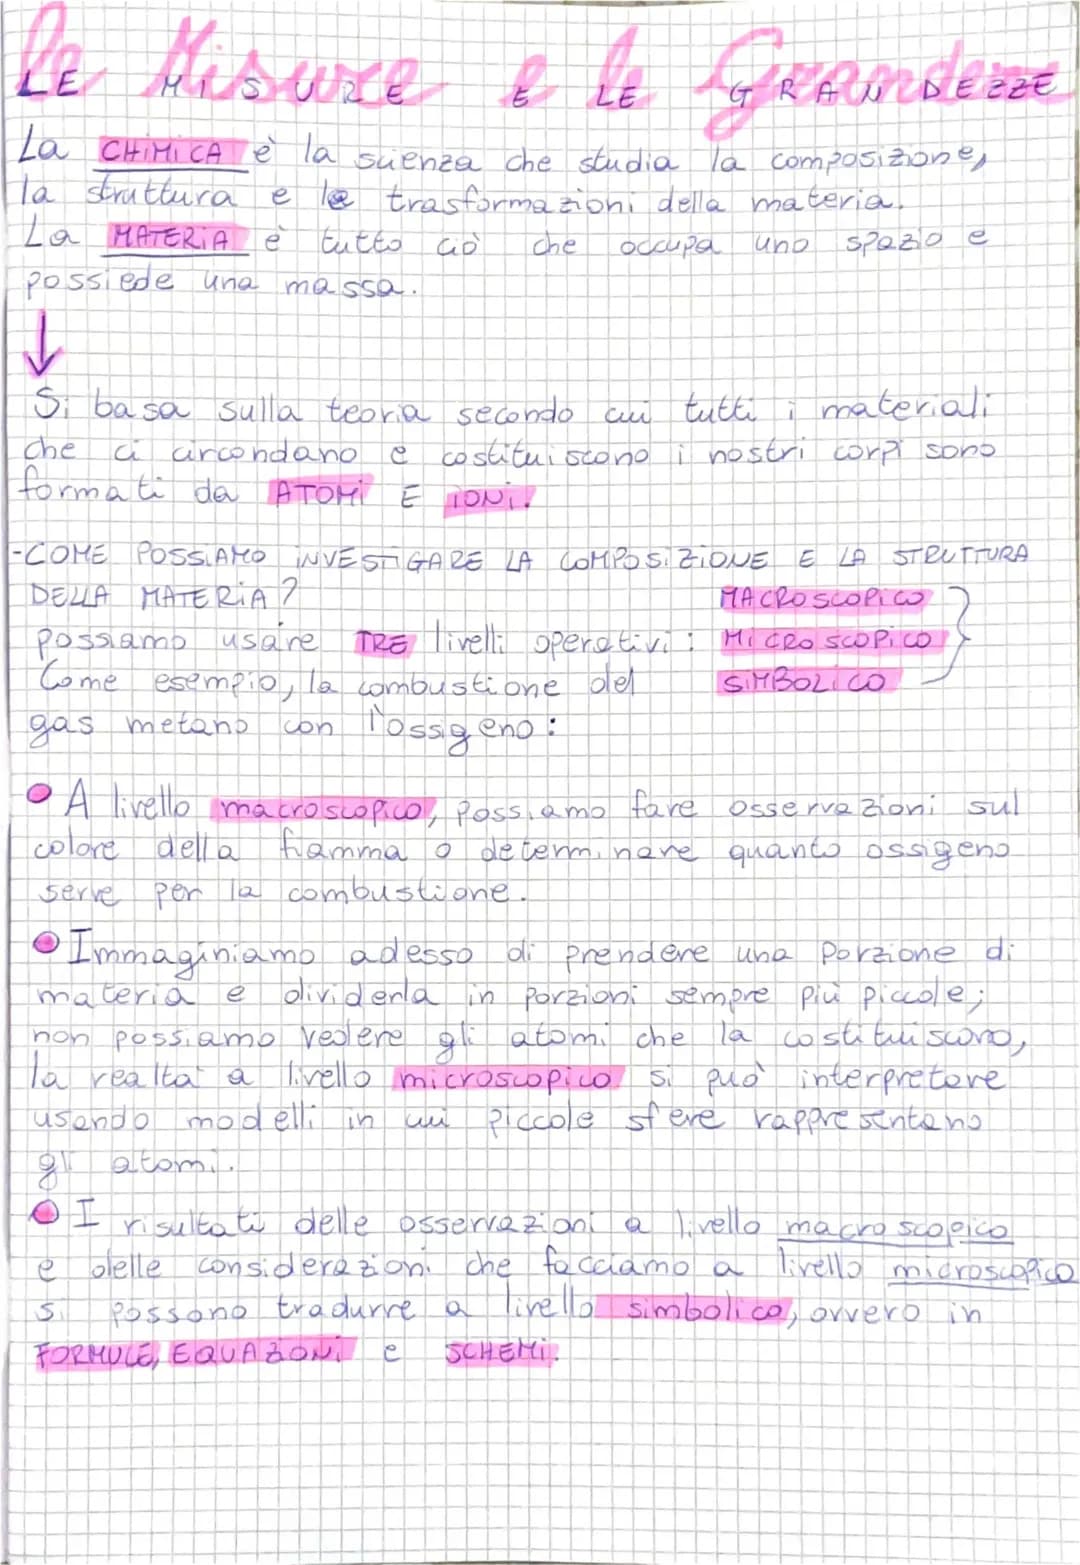 Le Misure e le Grandezze
LE MISURE E LE GRANDEZZE
La CHIMICA è la scienza che studia la composizione,
la struttura e le trasformazioni della materia.
La MATERIA è tutto ciò che occupa uno spazio e
possiede una massa.
↓
Si basa sulla teoria secondo cui tutti i materiali
che ci circondano e costituiscono i nostri corpi sono
formati da ATOMI E IONI.
-COME POSSIAMO INVESTIGARE LA COMPOSIZIONE E LA STRUTTURA
DELLA MATERIA?
possiamo usare TRE livelli operativi: MACROSCOPICO
MICROSCOPICO
SIMBOLICO
Come esempio, la combustione del
gas metano con l'ossigeno:
• A livello macroscopico, possiamo fare osservazioni sul
colore della fiamma o determinare quanto ossigeno
serve per la combustione.
• Immaginiamo adesso di prendere una porzione di
materia e dividerla in porzioni sempre più piccole;
non possiamo vedere gli atomi che la costituiscono,
la realtà a livello microscopico si può interpretare
usando modelli in cui piccole sfere rappresentano
gli atomi.
• I risultati delle osservazioni a livello macroscopico
e delle considerazioni che facciamo a livello microscopico
si possono tradurre a livello simbolico, ovvero in
FORMULE, EQUAZIONI e SCHEMI.